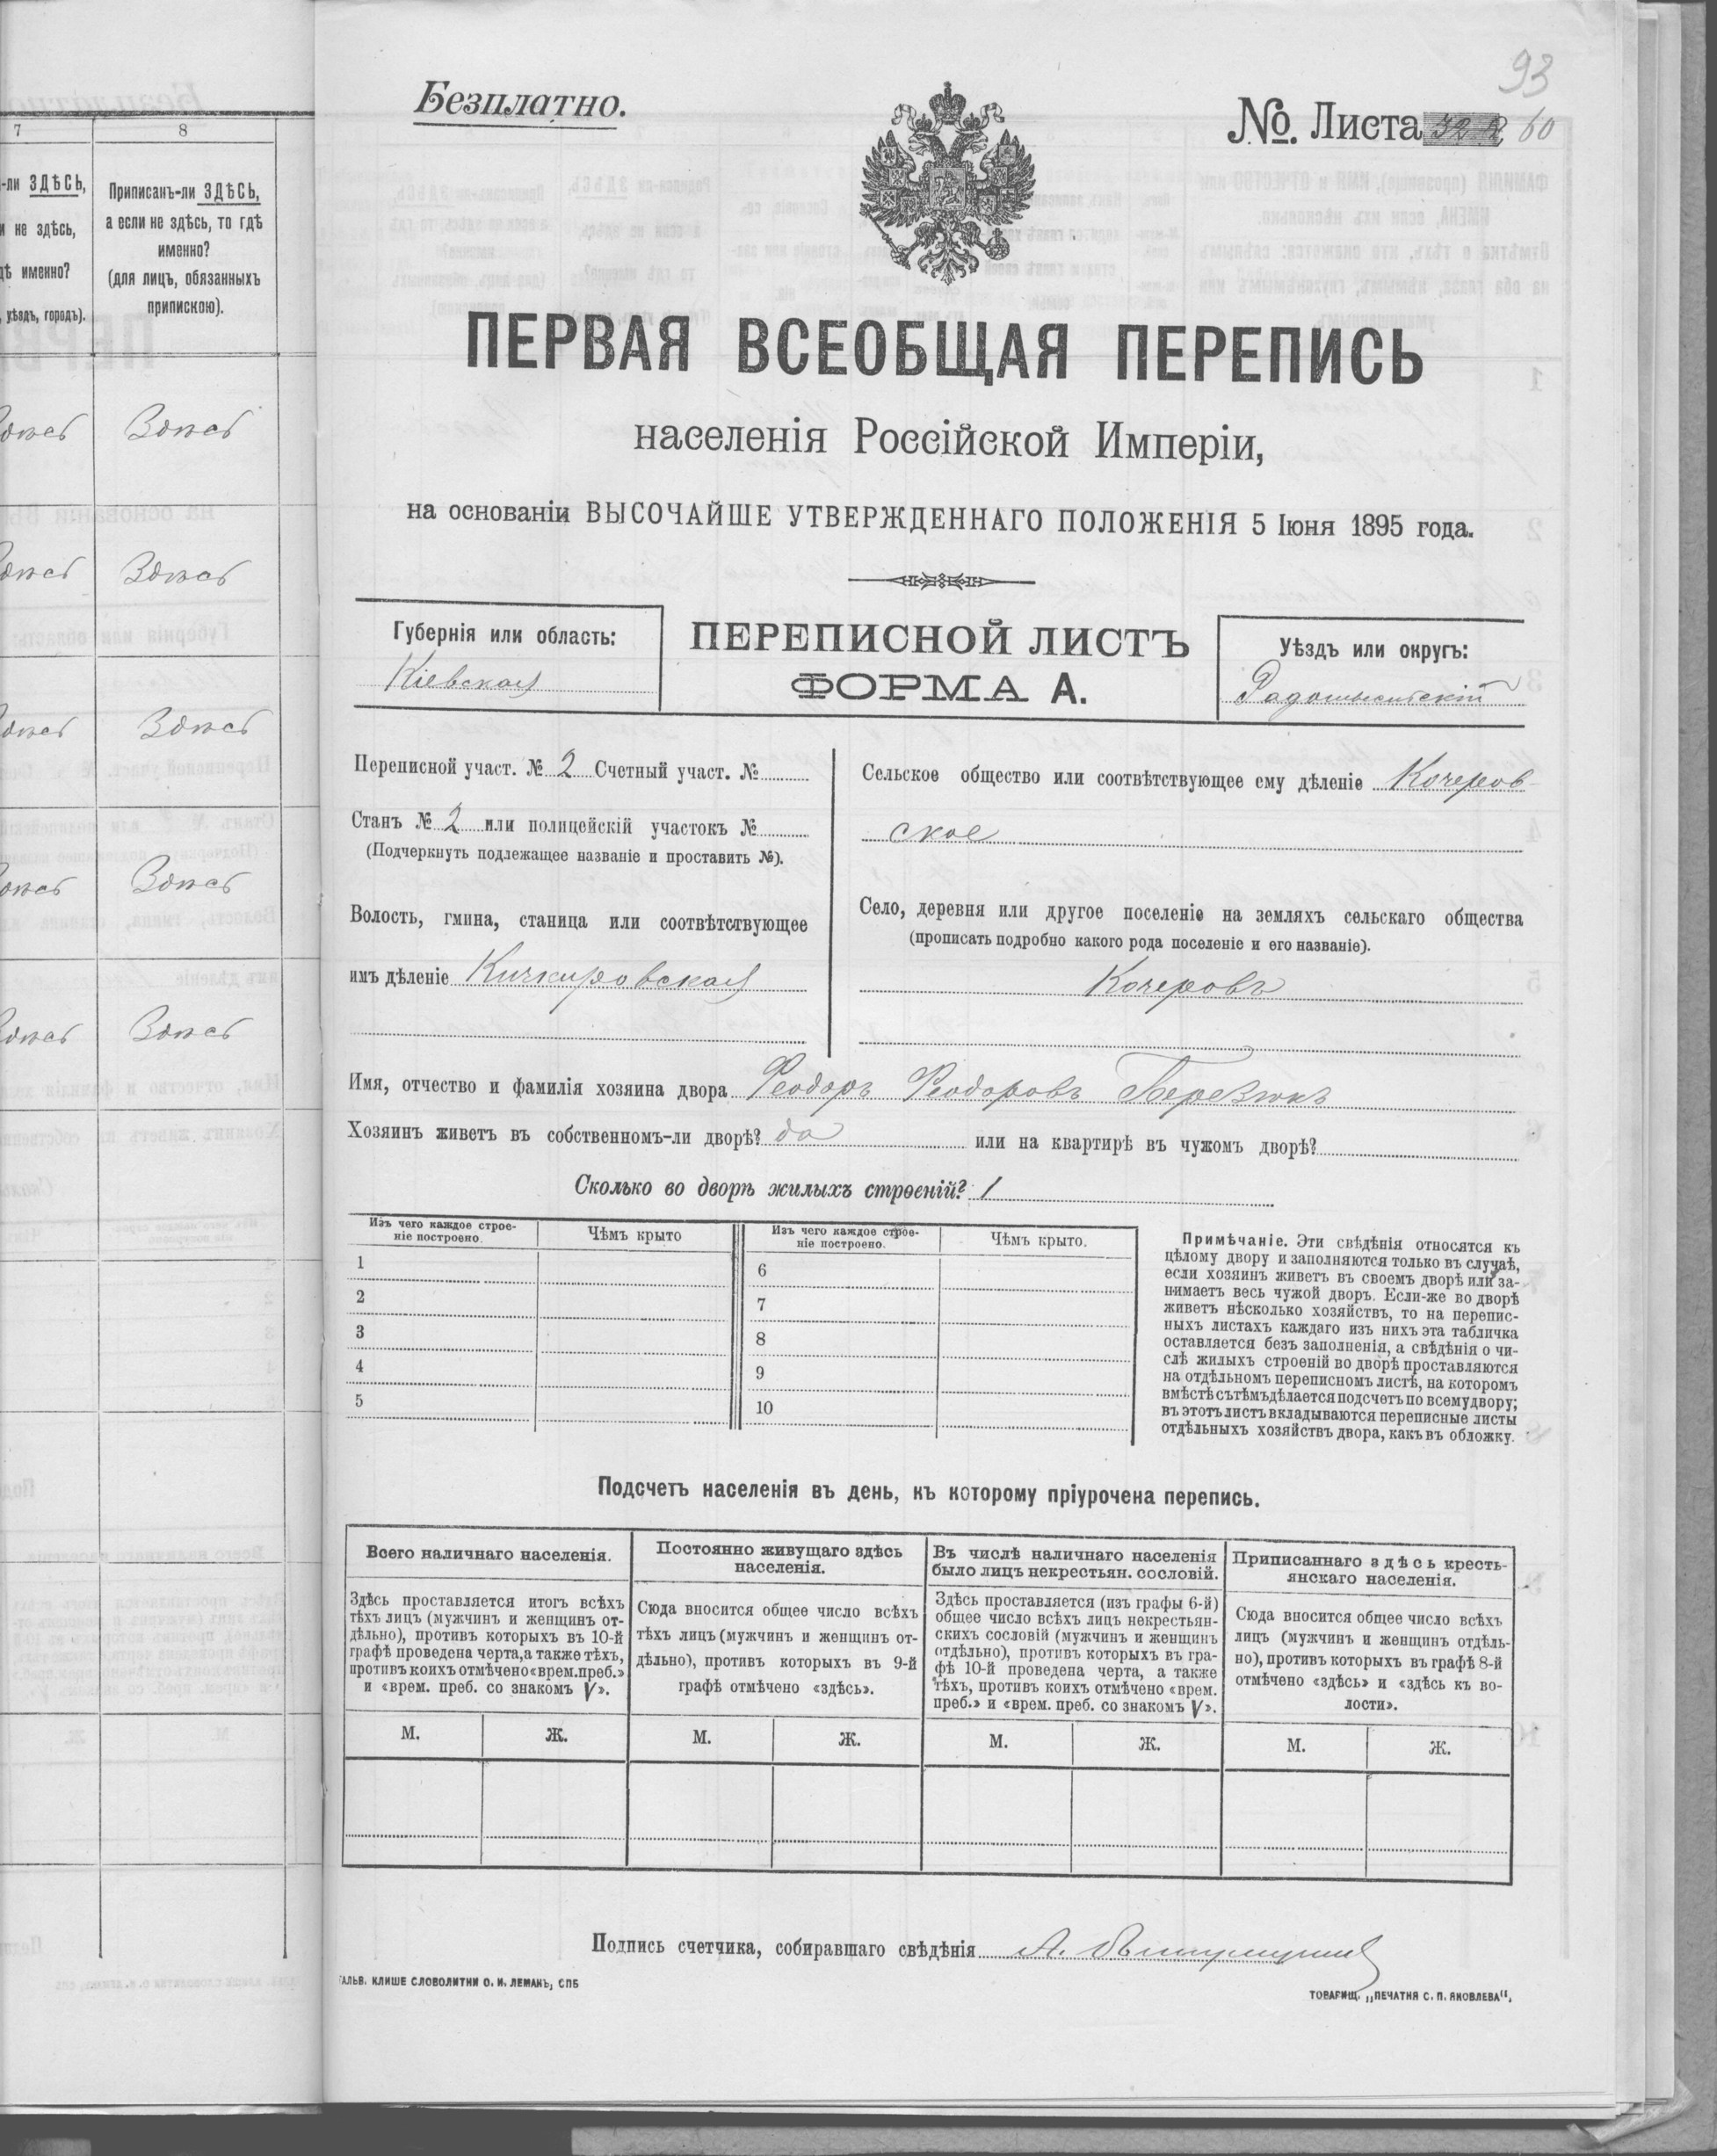 7
8
-ли ЗДѢСЬ,
и не здѣсь,
дѣ именно?
, уѣздъ, городъ).
Приписанъ-ли ЗДѢСЬ,
а если не здѣсь, то гдѣ
именно?
(для лицъ, обязанныхъ
припискою).
Здѣсь
Здѣсь
Здѣсь
Здѣсь
Здѣсь
93
Безплатно.
№. Листа 60
ПЕРВАЯ ВСЕОБЩАЯ ПЕРЕПИСЬ
населенія Россійской Имперіи,
на основаніи ВЫСОЧАЙШЕ УТВЕРЖДЕННАГО ПОЛОЖЕНІЯ 5 Іюня 1895 года.
Губернія или область:
Кіевская
ПЕРЕПИСНОЙ ЛИСТЪ
ФОРМА А.
Уѣздъ или округъ:
Радомысльскій
Переписной участ. № 2 Счетный участ. №
Станъ № 2 или полицейскій участокъ №
(Подчеркнуть подлежащее названіе и проставить №).
Волость, гмина, станица или соотвѣтствующее
имъ дѣленіе Кичкировская
Сельское общество или соотвѣтствующее ему дѣленіе Кочеров-
ское
Село, деревня или другое поселеніе на земляхъ сельскаго общества
(прописать подробно какого рода поселеніе и его названіе).
Кочеровъ
Имя, отчество и фамилія хозяина двора Феодоръ Феодоровъ Березюкъ
Хозяинъ живетъ въ собственномъ-ли дворѣ? да или на квартирѣ въ чужомъ дворѣ?
Сколько во дворѣ жилыхъ строеній? 1
Изъ чего каждое строе-
ніе построено.
Чѣмъ крыто
Изъ чего каждое строе-
ніе построено.
Чѣмъ крыто.
1
2
3
4
5
6
7
8
9
10
Примѣчаніе. Эти свѣдѣнія относятся къ
цѣлому двору и заполняются только въ случаѣ,
если хозяинъ живетъ въ своемъ дворѣ или за-
нимаетъ весь чужой дворъ. Если-же во дворѣ
живетъ нѣсколько хозяйствъ, то на перепис-
ныхъ листахъ каждаго изъ нихъ эта табличка
оставляется безъ заполненія, а свѣдѣнія о чи-
слѣ жилыхъ строеній во дворѣ проставляются
на отдѣльномъ переписномъ листѣ, на которомъ
вмѣстѣ съ тѣмъ дѣлается подсчетъ по всему двору;
въ этотъ листъ вкладываются переписные листы
отдѣльныхъ хозяйствъ двора, какъ въ обложку.
Подсчетъ населенія въ день, къ которому пріурочена перепись.
Всего наличнаго населенія.
Здѣсь проставляется итогъ всѣхъ
тѣхъ лицъ (мужчинъ и женщинъ от-
дѣльно), противъ которыхъ въ 10-й
графѣ проведена черта, а также тѣхъ,
противъ коихъ отмѣчено «врем. преб.»
и «врем. преб. со знакомъ V».
М.
Ж.
Постоянно живущаго здѣсь
населенія.
Сюда вносится общее число всѣхъ
тѣхъ лицъ (мужчинъ и женщинъ от-
дѣльно), противъ которыхъ въ 9-й
графѣ отмѣчено «здѣсь».
М.
Ж.
Въ числѣ наличнаго населенія
было лицъ некрестьян. сословій.
Здѣсь проставляется (изъ графы 6-й)
общее число всѣхъ лицъ некрестьян-
скихъ сословій (мужчинъ и женщинъ
отдѣльно), противъ которыхъ въ гра-
фѣ 10-й проведена черта, а также
тѣхъ, противъ коихъ отмѣчено «врем.
преб.» и «врем. преб. со знакомъ V».
М.
Ж.
Приписаннаго здѣсь кресть-
янскаго населенія.
Сюда вносится общее число всѣхъ
лицъ (мужчинъ и женщинъ отдѣль-
но), противъ которыхъ въ графѣ 8-й
отмѣчено «здѣсь» и «здѣсь къ во-
лости».
М.
Ж.
Подпись счетчика, собиравшаго свѣдѣнія А.
ГАЛЬВ. КЛИШЕ СЛОВОЛИТНИ О. И. ЛЕМАНЪ, СПБ
ТОВАРИЩ. „ПЕЧАТНЯ С. П. ЯКОВЛЕВА“.